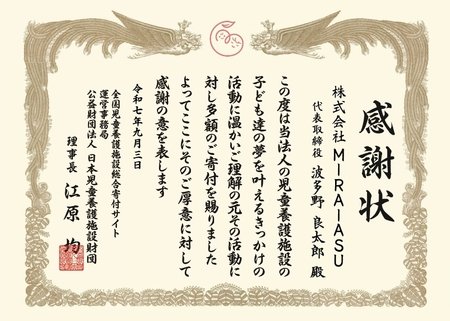 感謝状
株式会社 MIRAIASU
代表取締役 波多野 良太郎 殿
この度は当法人の児童養護施設の
子ども達の夢を叶えるきっかけの
活動に温かいご理解の元その活動に
対し多額のご寄付を賜りました
よってここにそのご厚意に対して
感謝の意を表します
令和七年九月三日
全国児童養護施設総合寄付サイト
運営事務局
公益財団法人 日本児童養護施設財団
理事長 江原 均